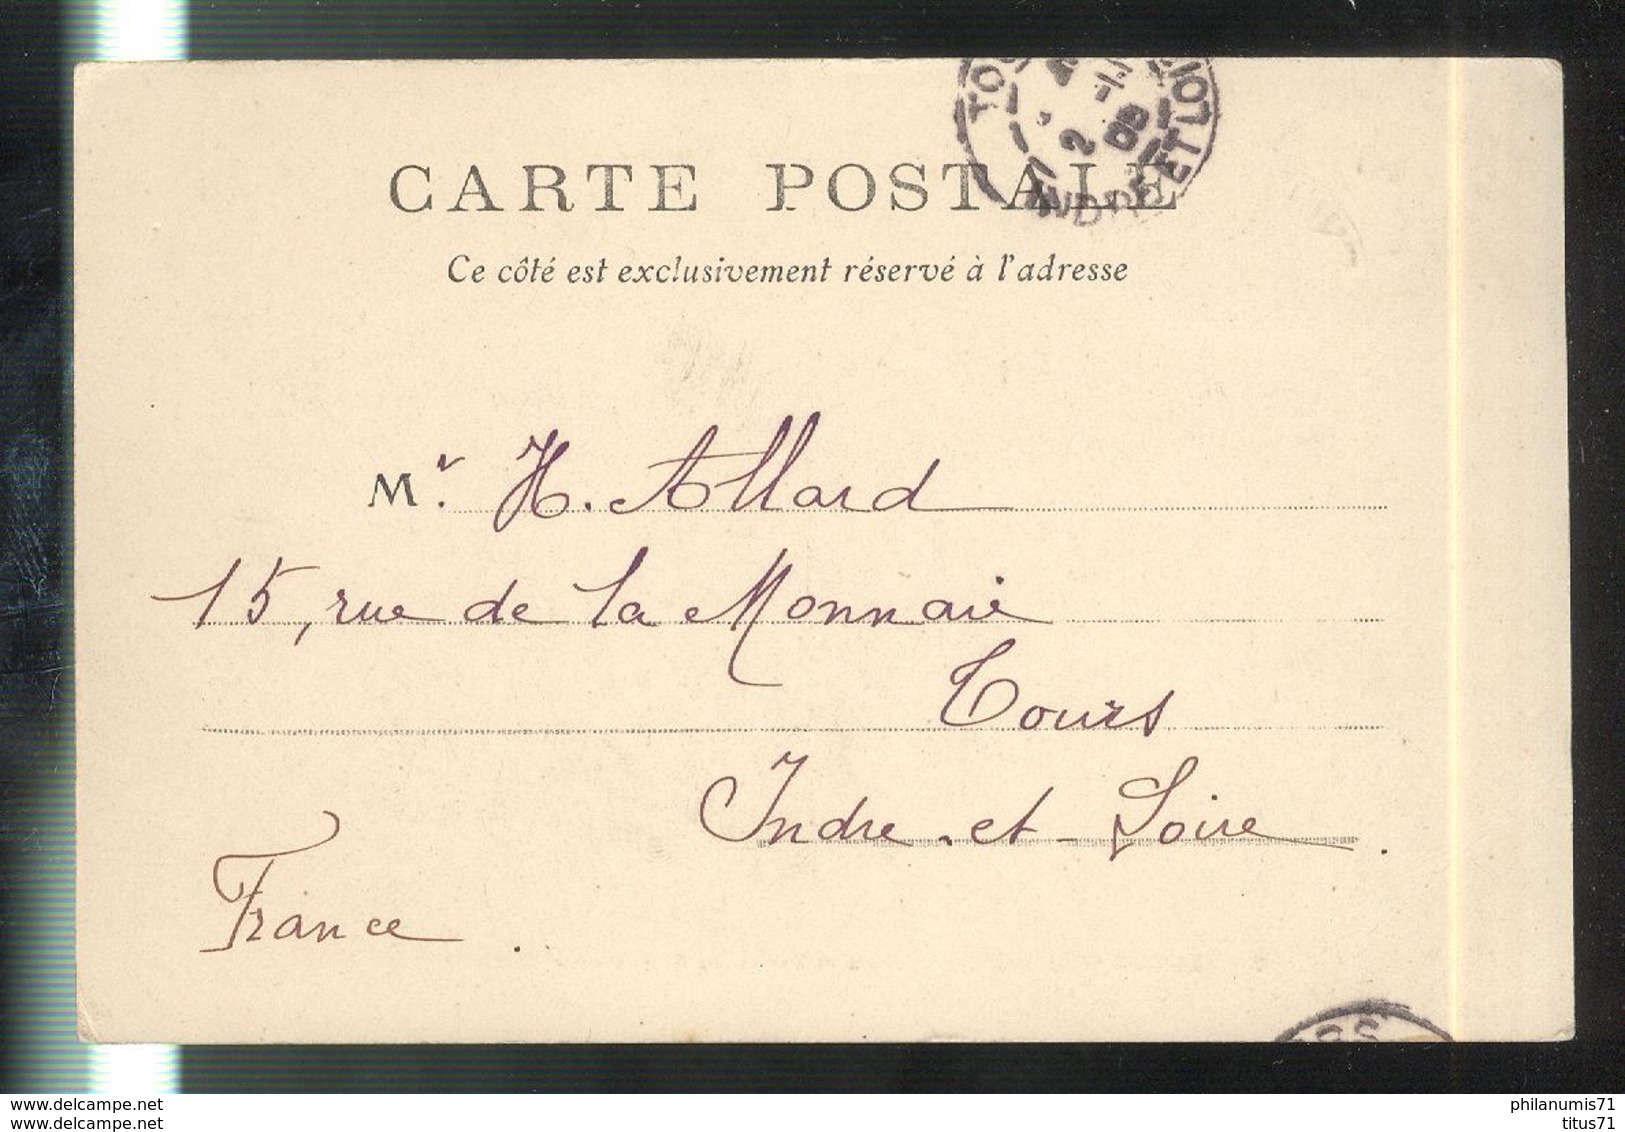 CARTE POSTALE
Ce côté est exclusivement réservé à l'adresse
Mr. H. Allard
15, rue de la Monnaie
Tours
Indre-et-Loire.
France.
INDRE ET LOIRE
2
www.delcampe.net
www.delcampe.net
philanumis71
titus71